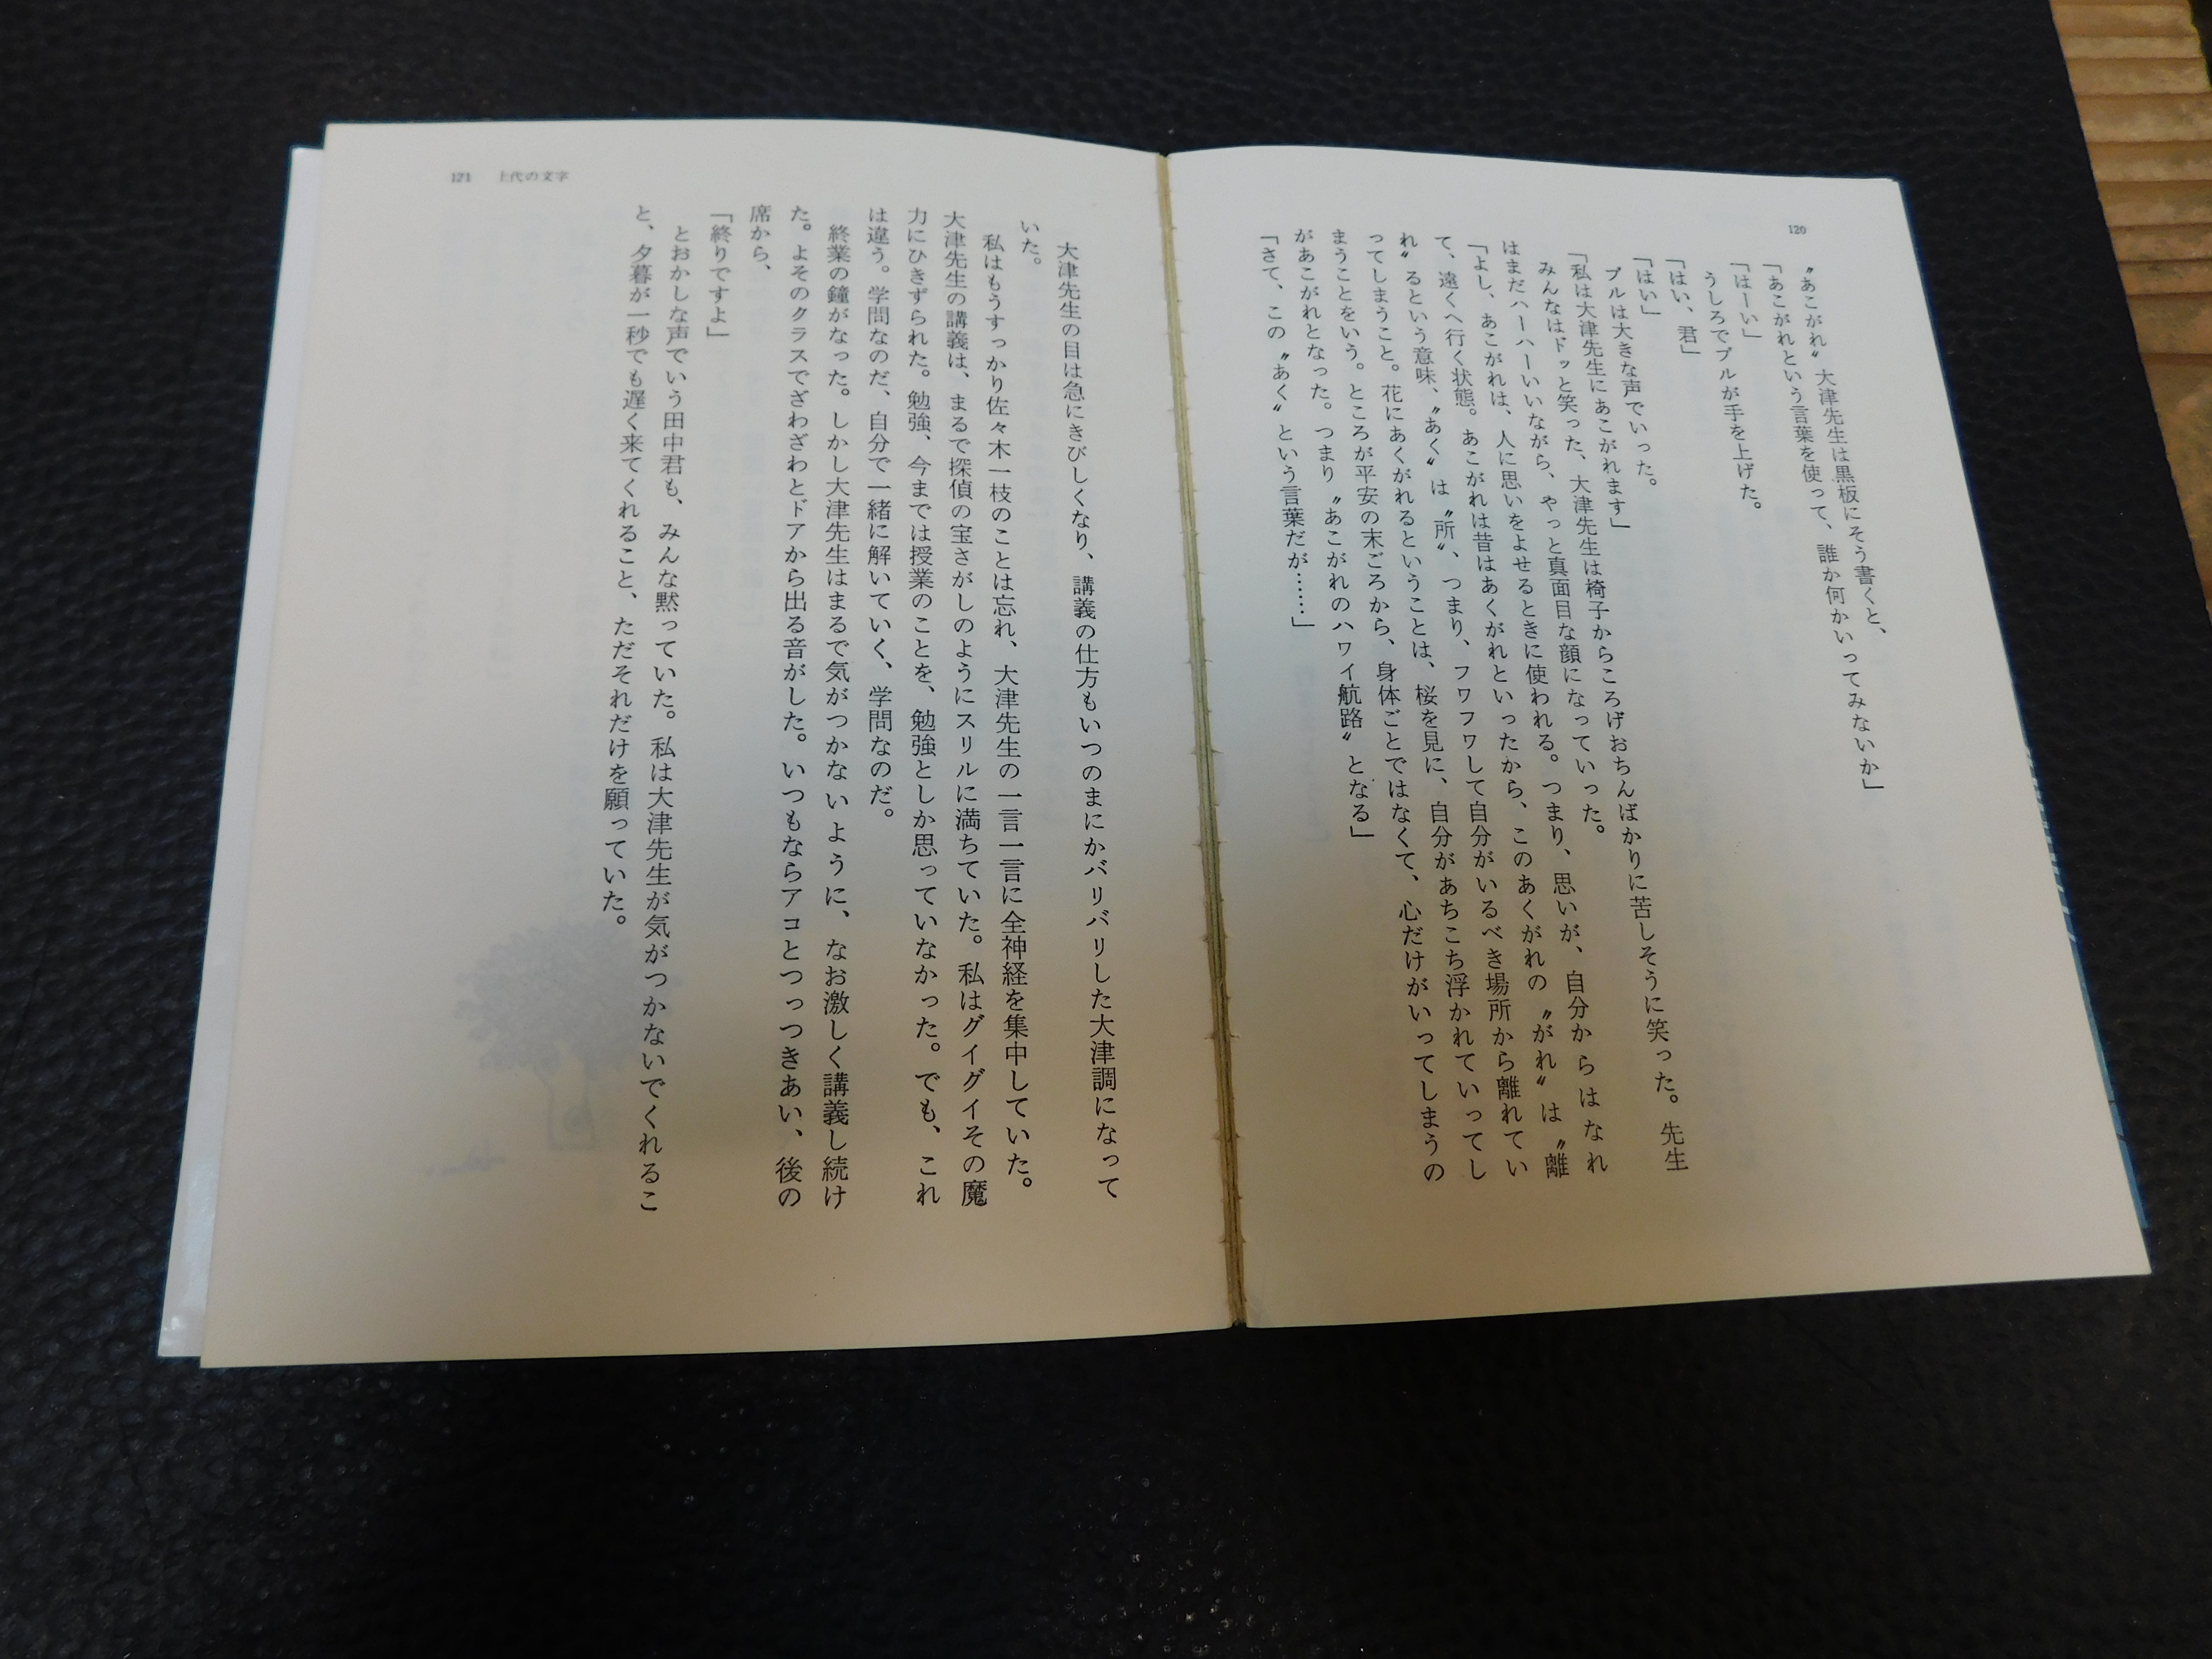 120
〝あこがれ〟大津先生は黒板にそう書くと、
「あこがれという言葉を使って、誰か何かいってみないか」
「はーい」
うしろでブルが手を上げた。
「はい、君」
「はい」
ブルは大きな声でいった。
「私は大津先生にあこがれます」
みんなはドッと笑った、大津先生は椅子からころげおちんばかりに苦しそうに笑った。先生
はまだハーハーいいながら、やっと真面目な顔になっていった。
「よし、あこがれは、人に思いをよせるときに使われる。つまり、思いが、自分からはなれ
て、遠くへ行く状態。あこがれは昔はあくがれといったから、このあくがれの〝がれ〟は〝離
れ〟るという意味、〝あく〟は〝所〟、つまり、フワフワして自分がいるべき場所から離れてい
ってしまうこと。花にあくがれるということは、桜を見に、自分があちこち浮かれていってし
まうことをいう。ところが平安の末ごろから、身体ごとではなくて、心だけがいってしまうの
があこがれとなった。つまり〝あこがれのハワイ航路〟となる」
「さて、この〝あく〟という言葉だが……」
121 上代の文字
大津先生の目は急にきびしくなり、講義の仕方もいつのまにかバリバリした大津調になって
いた。
私はもうすっかり佐々木一枝のことは忘れ、大津先生の一言一言に全神経を集中していた。
大津先生の講義は、まるで探偵の宝さがしのようにスリルに満ちていた。私はグイグイその魔
力にひきずられた。勉強、今までは授業のことを、勉強としか思っていなかった。でも、これ
は違う。学問なのだ、自分で一緒に解いていく、学問なのだ。
終業の鐘がなった。しかし大津先生はまるで気がつかないように、なお激しく講義し続け
た。よそのクラスでざわざわとドアから出る音がした。いつもならアコとつっつきあい、後の
席から、
「終りですよ」
とおかしな声でいう田中君も、みんな黙っていた。私は大津先生が気がつかないでくれるこ
と、夕暮が一秒でも遅く来てくれること、ただそれだけを願っていた。